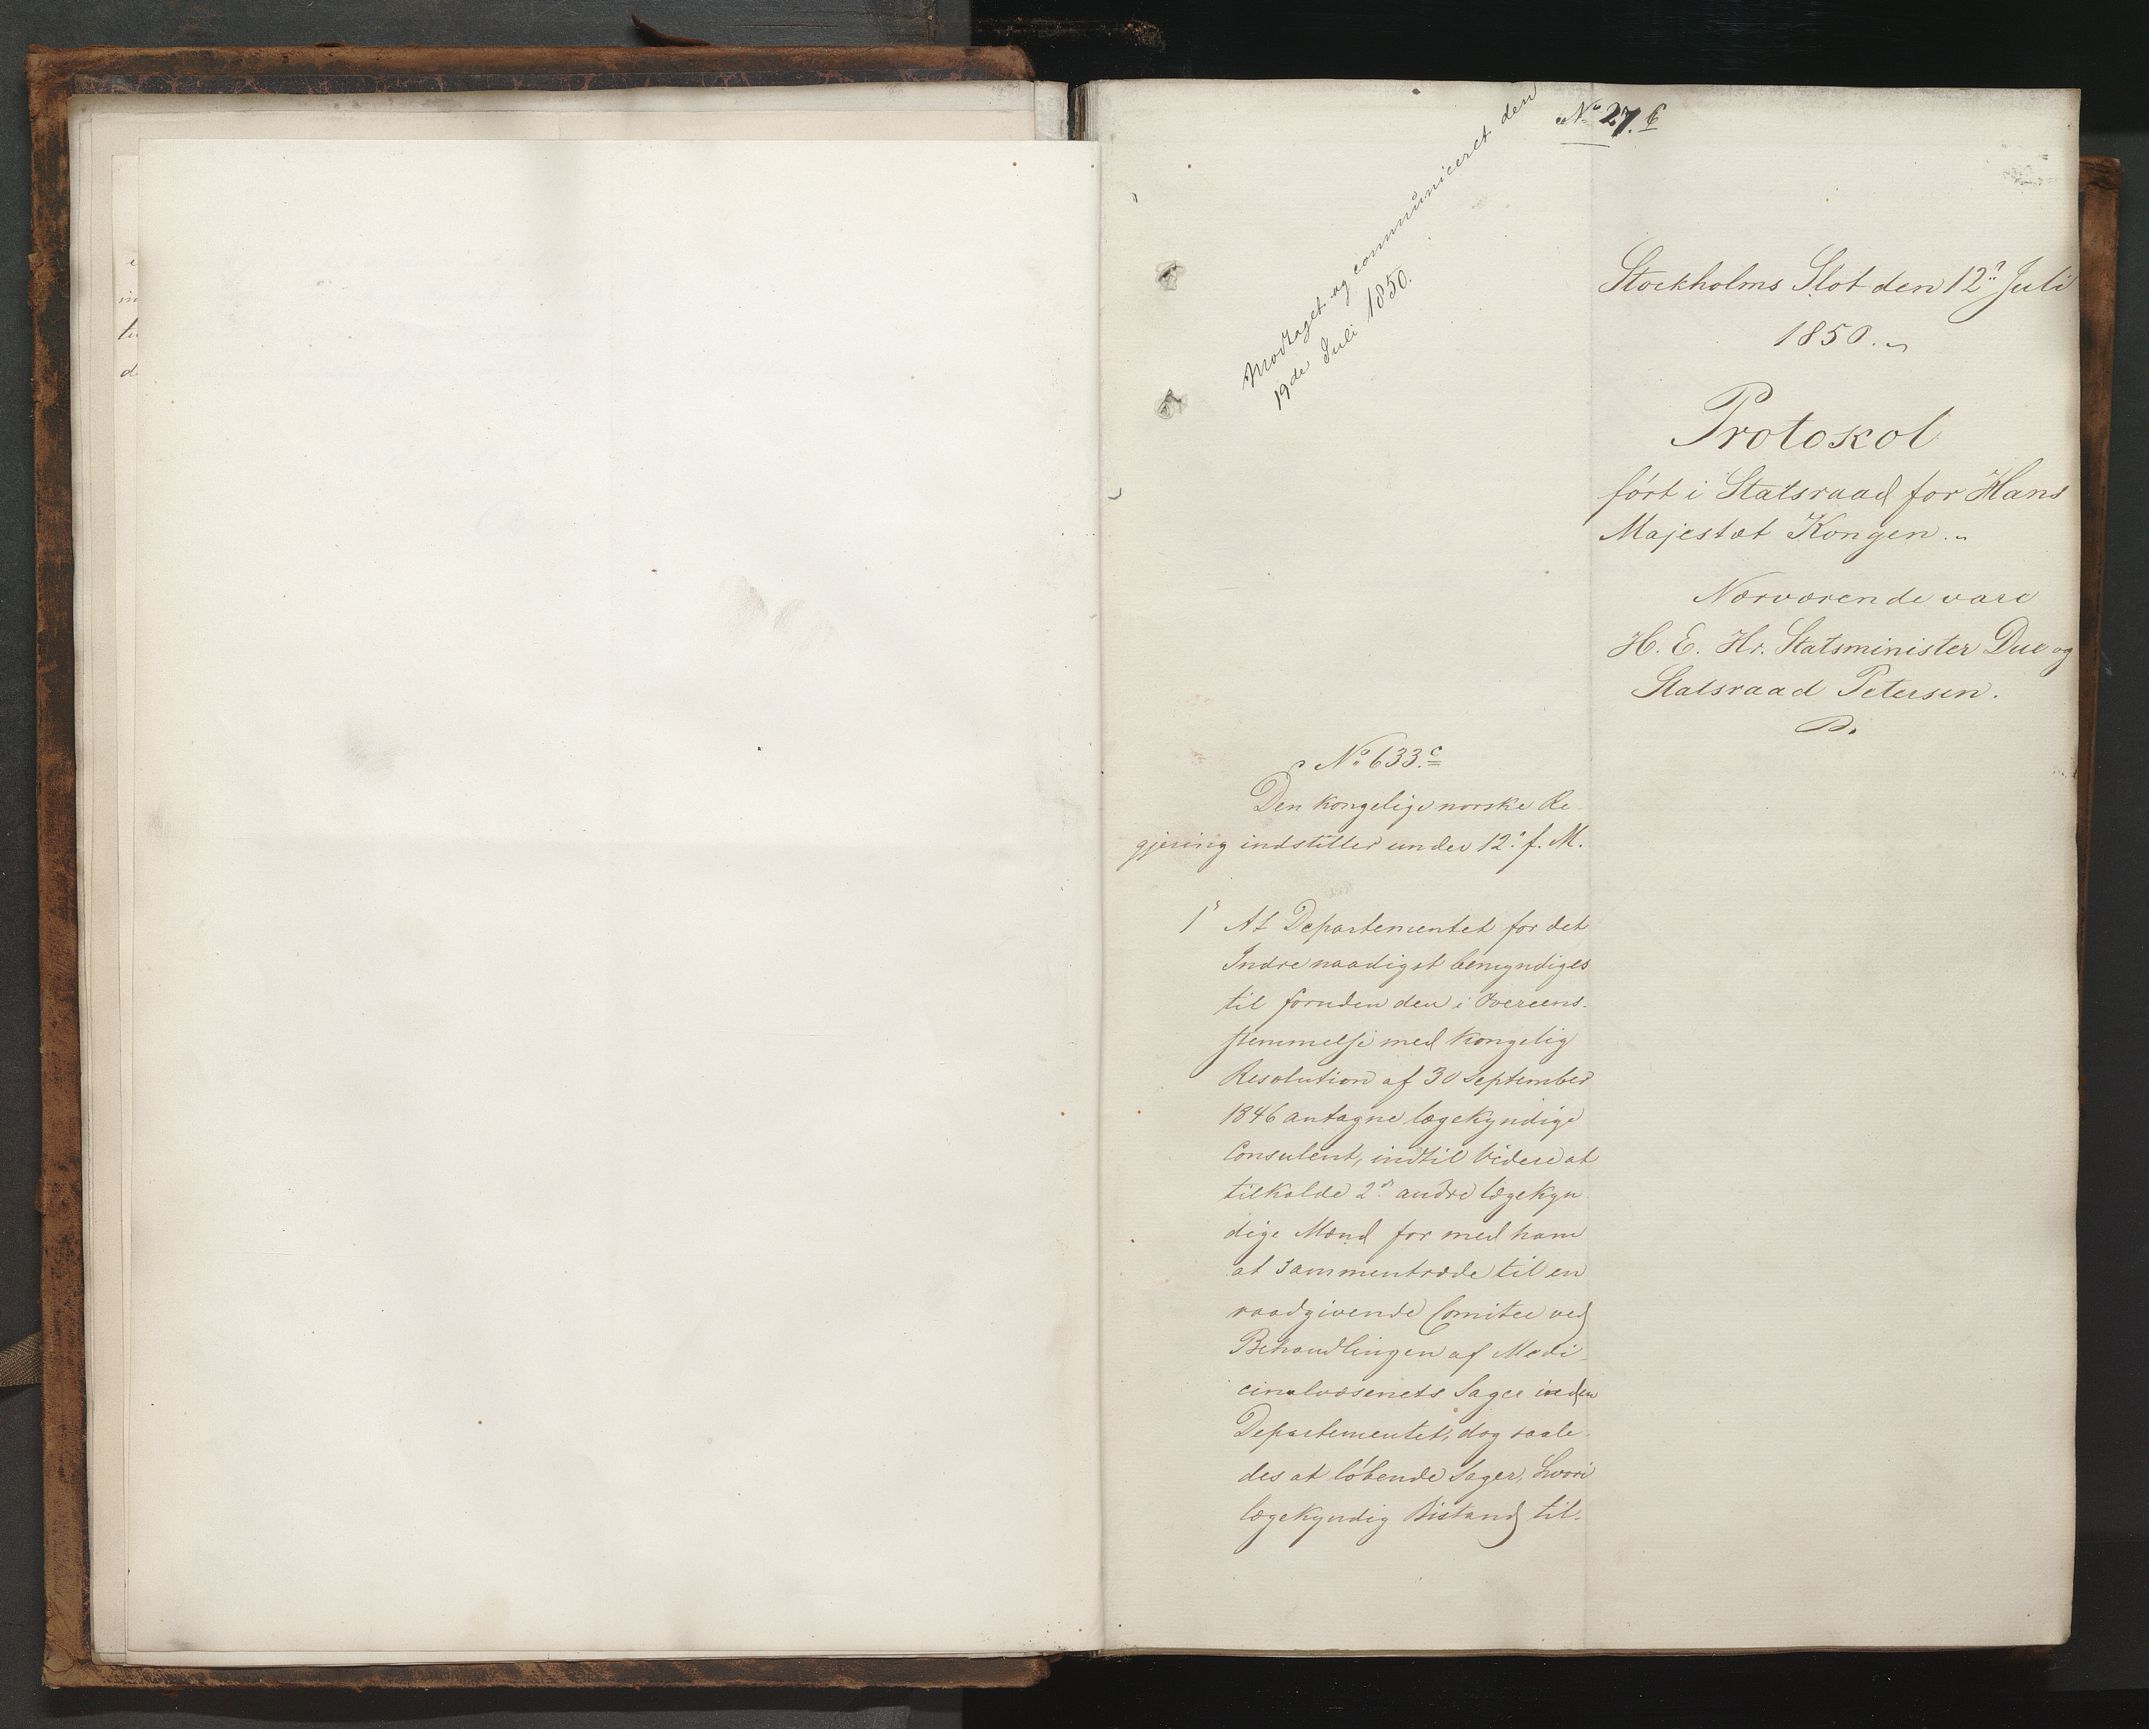 No 27. C
Modtaget og communiceret den
19de Juli 1850.
Stockholms Slot den 12te Juli
1850.
Protokol
ført i Statsraad for Hans
Majestæt Kongen.
Nærværende vare
H. E. Hr. Statsminister Due og
Statsraad Petersen.
No 633. C
Den Kongelige norske Re
gjering indstiller under 12. f. M.
1. At Departementet for det
Indre naadigst bemyndiges
til foruden den i Overeens-
stemmelse med Kongelig
Resolution af 30 September
1846 antagne lægekyndige
Consulent, indtil Videre at
tilkalde 2de andre lægekyn
dige Mænd for med ham
at Sammentræde til en
raadgivende Comitee ved
Behandlingen af Medi-
cinalvæsenets Sager inden
Departementet, dog saale-
des at løbende Sager, hvori
lægekyndig Bistand til-